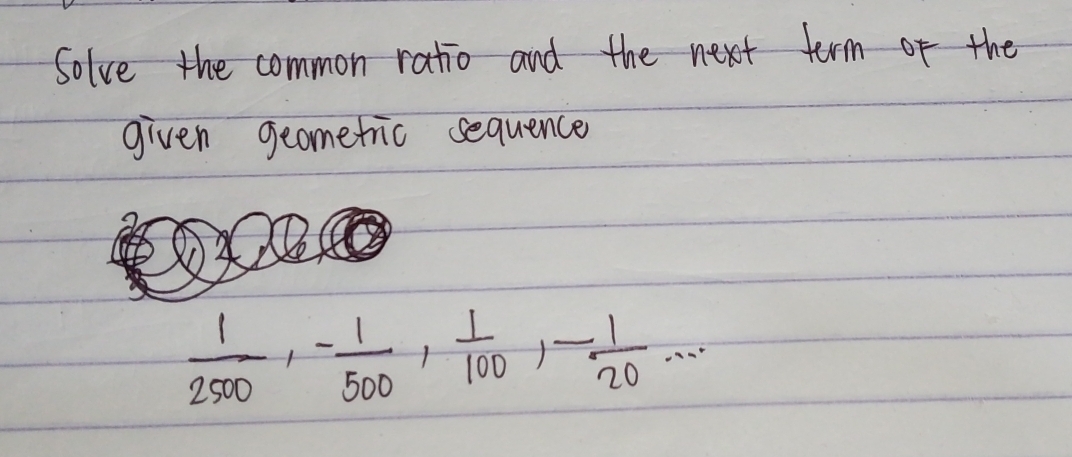 Solve the common ratio and the next term of the
given geometric sequence
1/2500, -1/500, 1/100, -1/20 ....